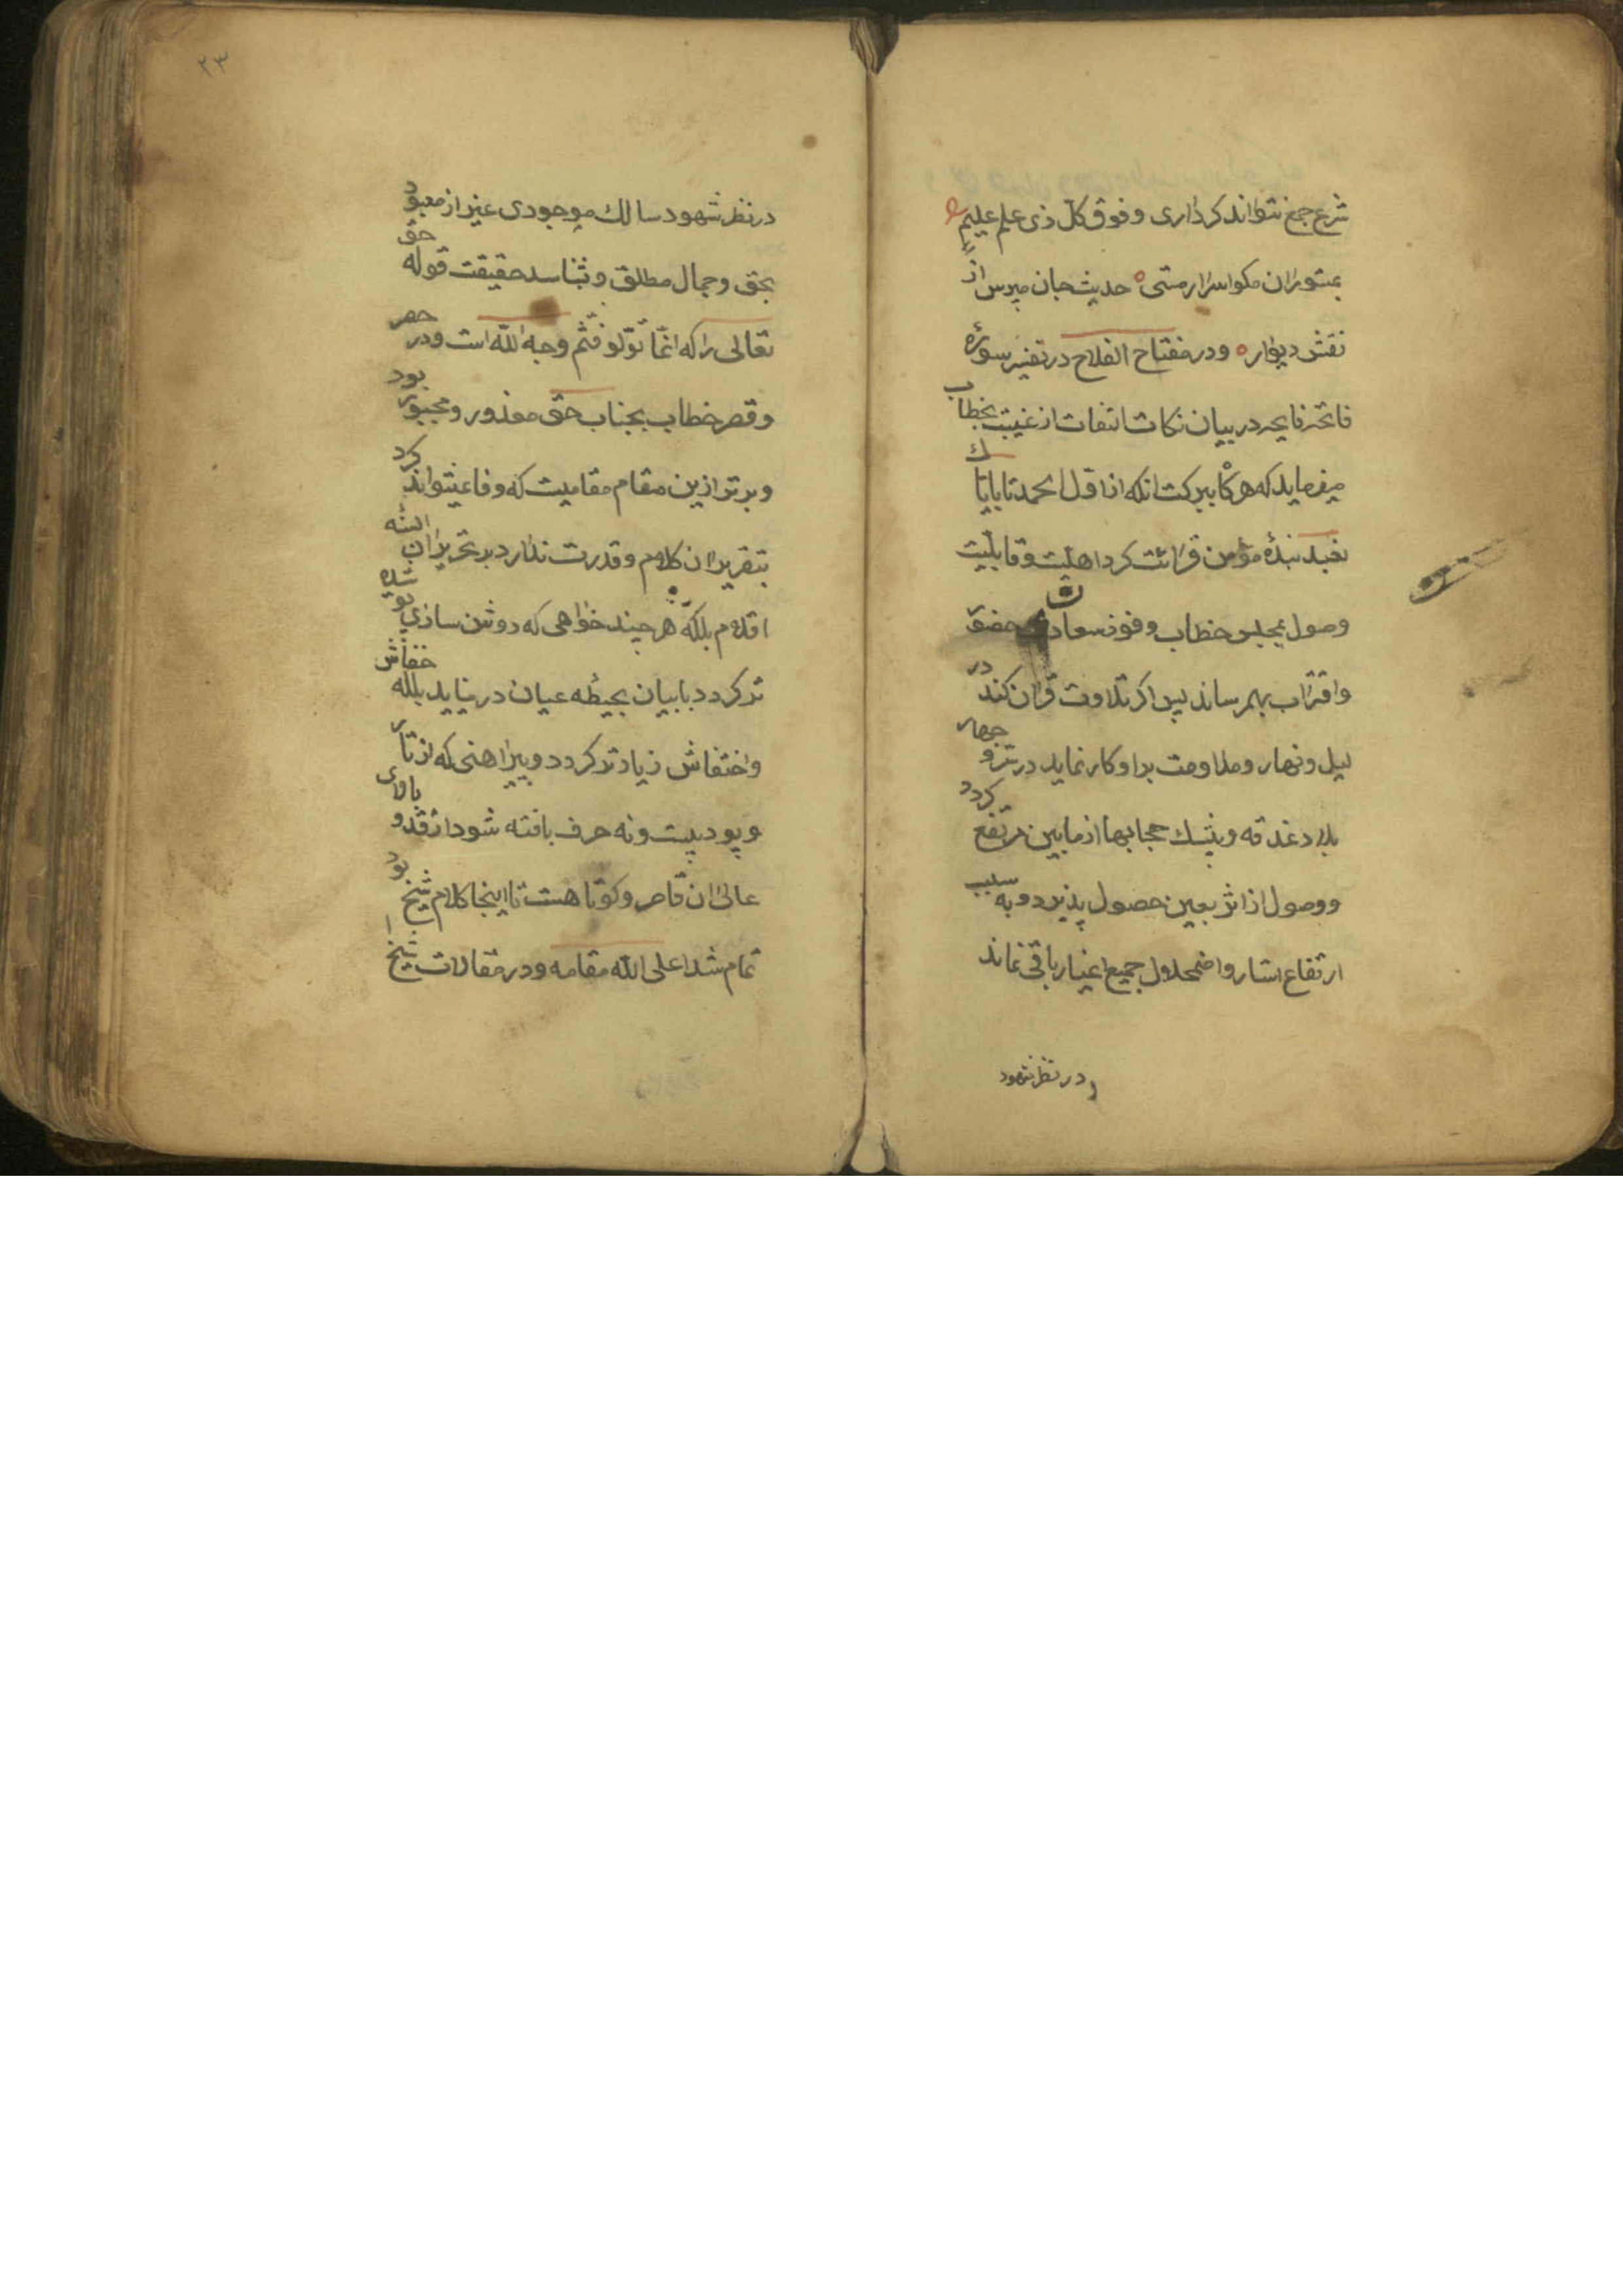 شرع جمع نتواند کرد اری و فوق کل ذی علم علیم
بمستوران مکو اسرار مستی حدیث جان مپرس از
نقش دیوار و در مفتاح الفلاح در تفسیر سوره
فاتحه فایحه در بیان نکات التفات از غیبت بخطاب
میفرماید که هرگاه ببرکت انکه از اول الحمد تا بایاک
نعبد بنده مؤمن قرائت کرد اهلیت و قابلیت
وصول بمجلس خطاب و فوز سعادت حضور
و اقتراب بهم رساند پس اکر تلاوت قران کند در
لیل و نهار و مداومت بدا و کار نماید در سر و جهار
بلا دغدقه و بیشک حجابها از مابین مرتفع کردد
و وصول از اثر بعین حصول پذیرد و به سبب
ارتفاع استار و اضمحلال جمیع اغیار باقی نماند
در نظر شهود
۲۳
در نظر شهود سالک موجودی غیر از معبود
بحق و جمال مطلق و بشناسد حقیقت قوله حق
تعالی را که انما تولو فثم وجه الله است و در حصر
و قصر خطاب بجناب حق معذور و مجبور بود
و برتر ازین مقام مقامیست که وفا نمیتواند کرد
بتقریر ان کلام و قدرت ندارد بر تحریر ان السنه
اقلام بلکه هر چند خواهی که روشن سازی پوشیده
تر کردد با بیان بحیطه عیان در نیاید بلکه خفاش
و اختفاش زیادتر کردد و پیراهنی که از تار
و پود بیست و نه حرف بافته شود از قد و بالای
عالی ان قاصر و کوتاهست تا اینجا کلام شیخ بود
تمام شد اعلی الله مقامه و در مقالات شیخ